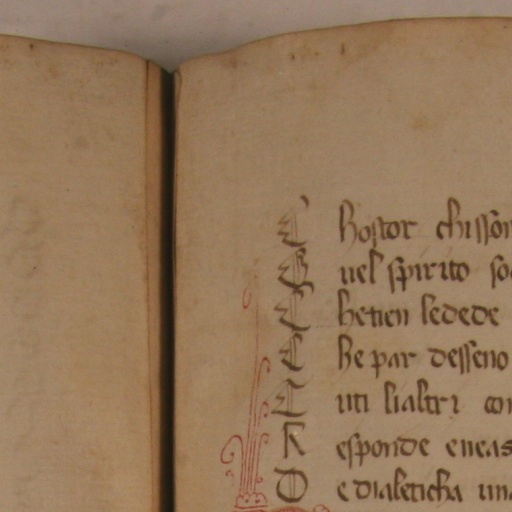 C hostor chisson
E uel spirito so
C hetien ledede
C he par desseno
C uti lialtri con
R esponde eneas
D e dialeticha una